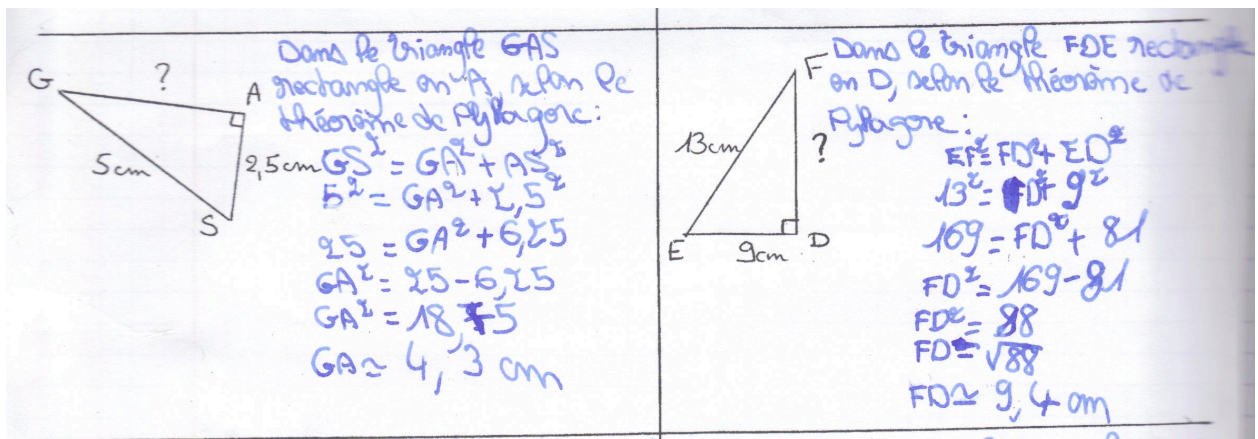 G
?
A
5cm
2,5cm
S
Dans le triangle GAS
rectangle en A, selon le
théorème de Pythagore:
GS² = GA² + AS²
5² = GA² + 2,5²
25 = GA² + 6,25
GA² = 25 - 6,25
GA² = 18,75
GA ≃ 4,3 cm
F
13cm
?
E
9cm
D
Dans le triangle FDE rectangle
en D, selon le théorème de
Pythagore:
EF² = FD² + ED²
13² = FD² + 9²
169 = FD² + 81
FD² = 169 - 81
FD² = 88
FD = √88
FD ≃ 9,4 cm